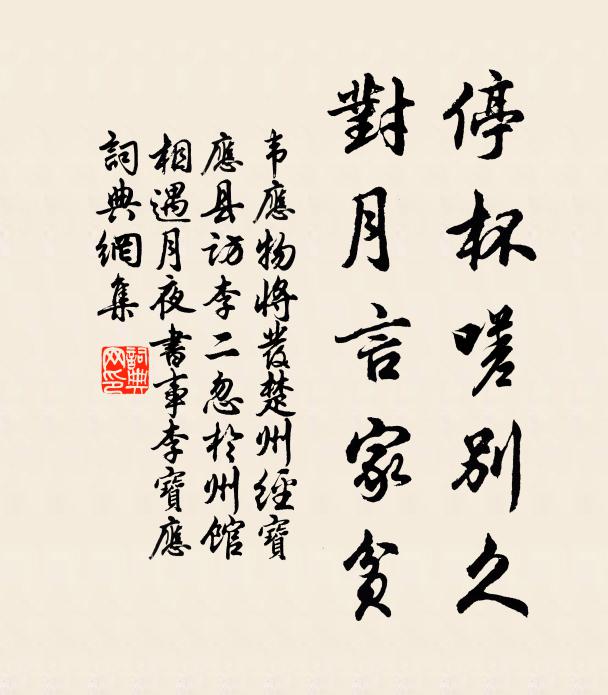 停杯嗟別久
對月言家貧
韦應物將發楚州經寶
應县訪李二忽於州館
相遇月夜書事李寶應
詞典網集
詞典
网印